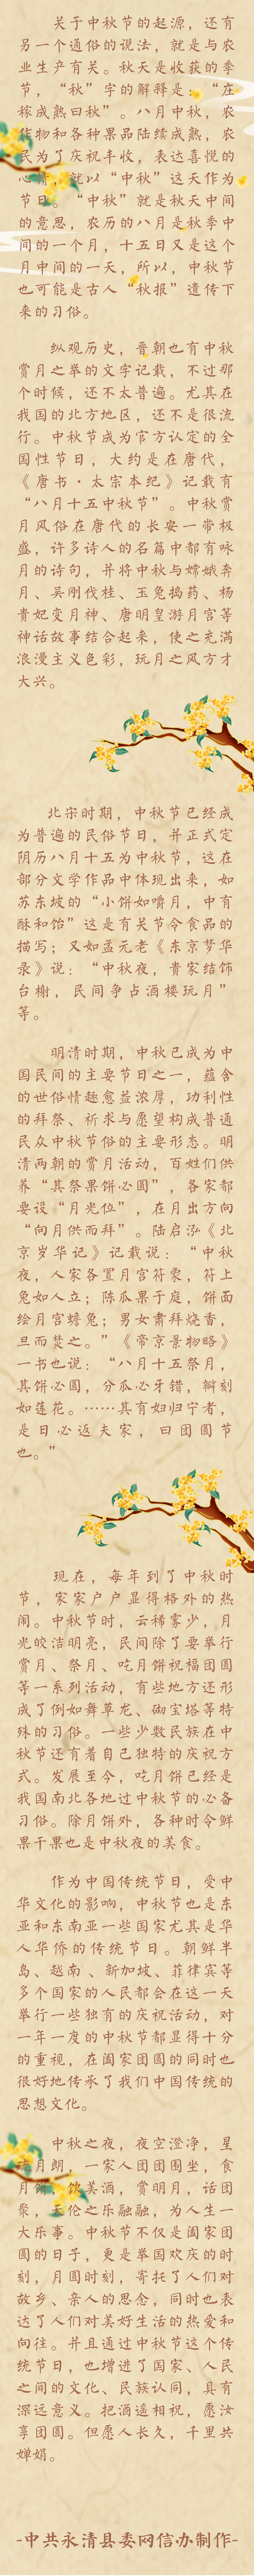 关于中秋节的起源，还有
另一个通俗的说法，就是与农
业生产有关。秋天是收获的季
节，“秋”字的解释是：“庄
稼成熟曰秋”。八月中秋，农
作物和各种果品陆续成熟，农
民为了庆祝丰收，表达喜悦的
心情，就以“中秋”这天作为
节日。“中秋”就是秋天中间
的意思，农历的八月是秋季中
间的一个月，十五日又是这个
月中间的一天，所以，中秋节
也可能是古人“秋报”遗传下
来的习俗。
纵观历史，晋朝也有中秋
赏月之举的文字记载，不过那
个时候，还不太普遍。尤其在
我国的北方地区，还不是很流
行。中秋节成为官方认定的全
国性节日，大约是在唐代，
《唐书·太宗本纪》记载有
“八月十五中秋节”。中秋赏
月风俗在唐代的长安一带极
盛，许多诗人的名篇中都有咏
月的诗句，并将中秋与嫦娥奔
月、吴刚伐桂、玉兔捣药、杨
贵妃变月神、唐明皇游月宫等
神话故事结合起来，使之充满
浪漫主义色彩，玩月之风方才
大兴。
北宋时期，中秋节已经成
为普遍的民俗节日，并正式定
阴历八月十五为中秋节，这在
部分文学作品中体现出来，如
苏东坡的“小饼如嚼月，中有
酥和饴”这是有关节令食品的
描写；又如孟元老《东京梦华
录》说：“中秋夜，贵家结饰
台榭，民间争占酒楼玩月”
等。
明清时期，中秋已成为中
国民间的主要节日之一，蕴含
的世俗情趣愈益浓厚，功利性
的拜祭、祈求与愿望构成普通
民众中秋节俗的主要形态。明
清两朝的赏月活动，百姓们供
养“其祭果饼必圆”，各家都
要设“月光位”，在月出方向
“向月供而拜”。陆启泓《北
京岁华记》记载说：“中秋
夜，人家各置月宫符象，符上
兔如人立；陈瓜果于庭，饼面
绘月宫蟾兔；男女肃拜烧香，
旦而焚之。”《帝京景物略》
一书也说：“八月十五祭月，
其饼必圆，分瓜必牙错，瓣刻
如莲花。……其有妇归宁者，
是日必返夫家，曰团圆节
也。”
现在，每年到了中秋时
节，家家户户显得格外的热
闹。中秋节时，云稀雾少，月
光皎洁明亮，民间除了要举行
赏月、祭月、吃月饼祝福团圆
等一系列活动，有些地方还形
成了例如舞草龙、砌宝塔等特
殊的习俗。一些少数民族在中
秋节还有着自己独特的庆祝方
式。发展至今，吃月饼已经是
我国南北各地过中秋节的必备
习俗。除月饼外，各种时令鲜
果干果也是中秋夜的美食。
作为中国传统节日，受中
华文化的影响，中秋节也是东
亚和东南亚一些国家尤其是华
人华侨的传统节日。朝鲜半
岛、越南、新加坡、菲律宾等
多个国家的人民都会在这一天
举行一些独有的庆祝活动，对
一年一度的中秋节都显得十分
的重视，在阖家团圆的同时也
很好地传承了我们中国传统的
思想文化。
中秋之夜，夜空澄净，星
璨月朗，一家人团团围坐，食
月饼，饮美酒，赏明月，话团
聚，天伦之乐融融，为人生一
大乐事。中秋节不仅是阖家团
圆的日子，更是举国欢庆的时
刻，月圆时刻，寄托了人们对
故乡、亲人的思念，同时也表
达了人们对美好生活的热爱和
向往。并且通过中秋节这个传
统节日，也增进了国家、人民
之间的文化、民族认同，具有
深远意义。把酒遥相祝，愿汝
享团圆。但愿人长久，千里共
婵娟。
-中共永清县委网信办制作-